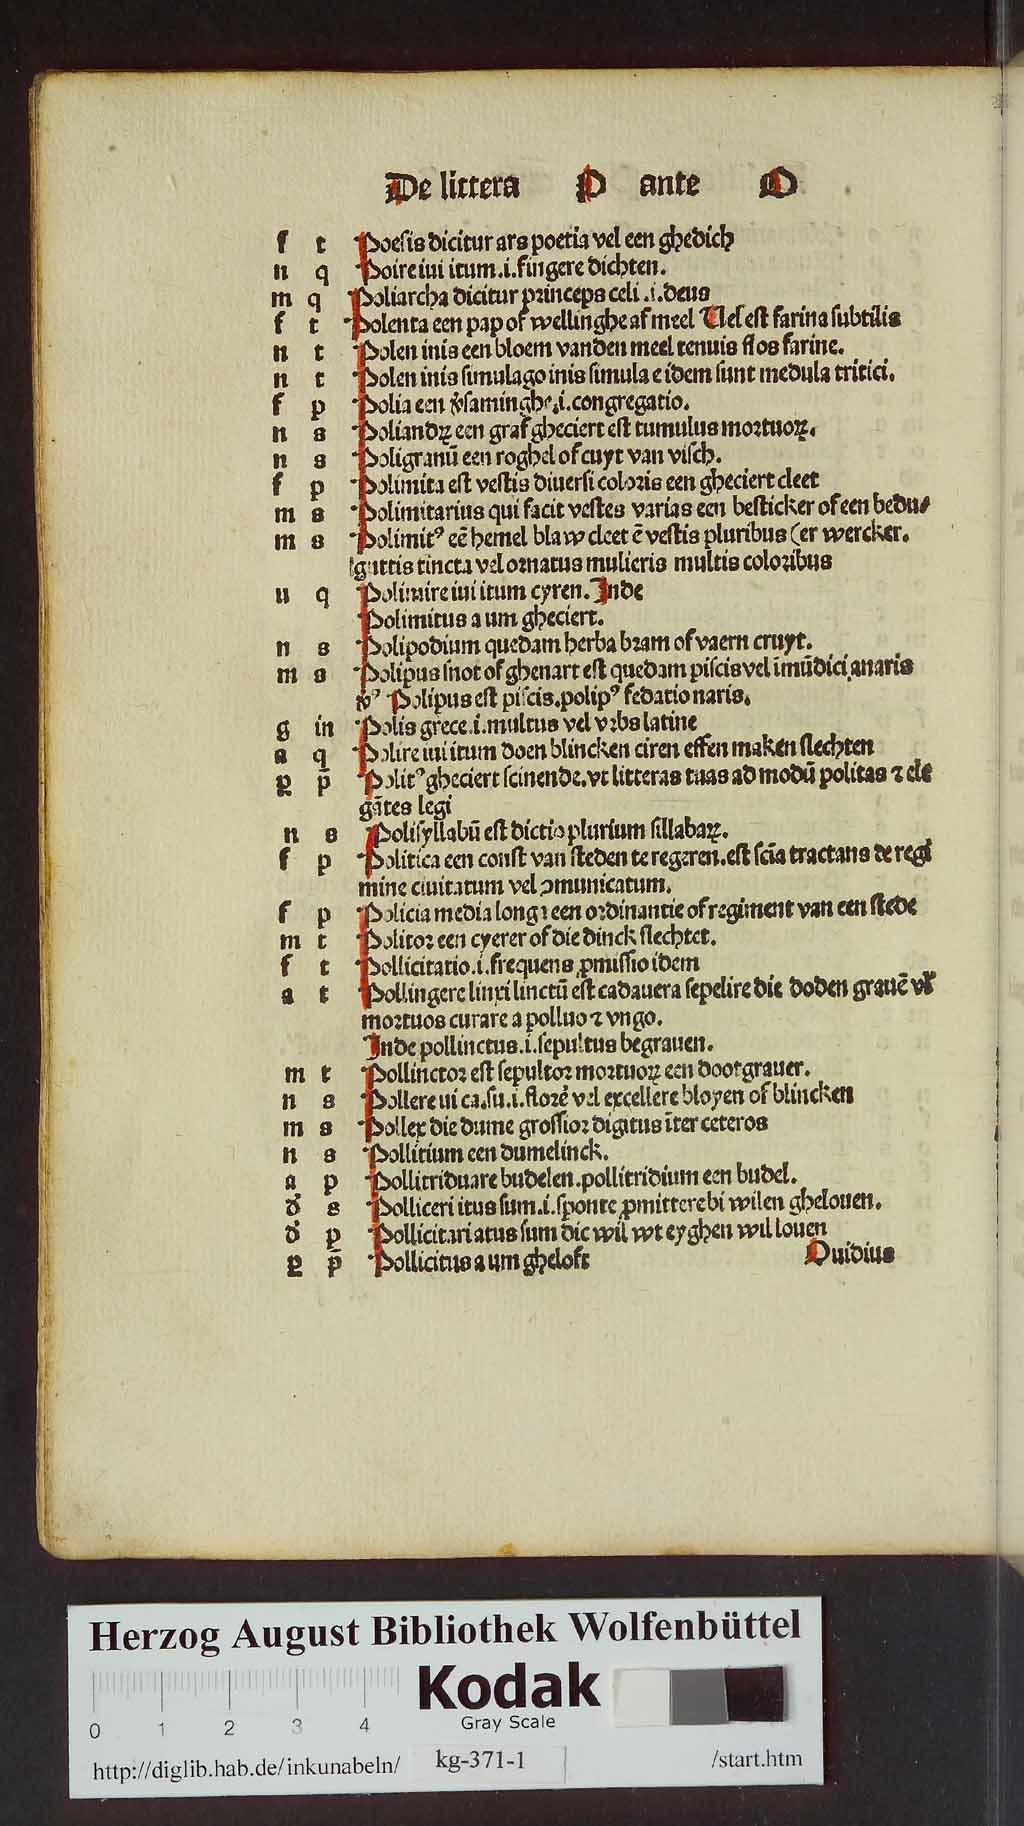 De littera P ante O
f t Poesis dicitur ars poetia vel een ghedich
n q Poire iui itum .i. fingere dichten.
m q Poliarcha dicitur princeps celi .i. deus
f t Polenta een pap of wellinghe af meel Uel est farina subtilis
n t Polen inis een bloem vanden meel tenuis flos farine.
n t Polen inis simulago inis simula e idem sunt medula tritici.
f p Polia een v̾saminghe .i. congregatio.
n s Poliandoꝝ een graf gheciert est tumulus mortuoꝝ.
n s Poligranū een roghel of cuyt van visch.
f p Polimita est vestis diuersi coloris een gheciert cleet
m s Polimitarius qui facit vestes varias een besticker of een bedu⸗
m s Polimitꝰ eē hemel blaw cleet ē vestis pluribus (er wercker.
guttis tincta vel ornatus mulieris multis coloribus
u q Polimire iui itum cyren. Inde
Polimitus a um gheciert.
n s Polipodium quedam herba bram of vaern cruyt.
m s Polipus snot of ghenart est quedam piscis vel īmūdici,anaris
v̾ꝰ Polipus est piscis. polipꝰ fedatio naris.
g in Polis grece .i. multus vel vrbs latine
a q Polire iui itum doen blincken ciren effen maken slechten
ꝑ p̄ Politꝰ gheciert scinende. vt litteras tuas ad modū politas ⁊ ele
gātes legi
n s Polisyllabū est dictio plurium sillabaꝝ.
f p Politica een const van steden te regeren. est scīa tractans de regi
mine ciuitatum vel ꝯmunicatum.
f p Policia media longa een ordinantie of regiment van een stede
m t Politor een cyerer of die dinck slechtet.
f t Pollicitatio .i. frequens ꝓmissio idem
a t Pollingere linxi linctū est cadauera sepelire die doden grauē vl̄
mortuos curare a polluo ⁊ vngo.
Inde pollinctus .i. sepultus begrauen.
m t Pollinctor est sepultor mortuoꝝ een dootgrauer.
n s Pollere ui ca. su .i. florē vel excellere bloyen of blincken
m s Pollex die dume grossior digitus īter ceteros
n s Pollitium een dumelinck.
a p Pollitriduare budelen. pollitridium een budel.
d̓ s Polliceri itus sum .i. sponte ꝓmittere bi wilen ghelouen.
d̓ p Pollicitari atus sum dic wil wt eyghen wil louen
ꝑ p̄ Pollicitus a um gheloft Ouidius
Herzog August Bibliothek Wolfenbüttel
Kodak
Gray Scale
0 1 2 3 4
http://diglib.hab.de/inkunabeln/ kg-371-1 /start.htm